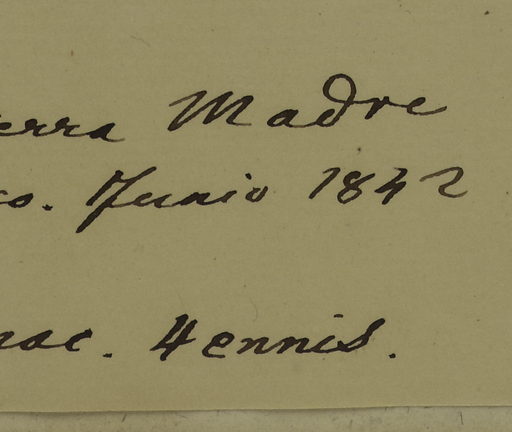 erra Madre
co. Junio 1842
nac. 4ennis.